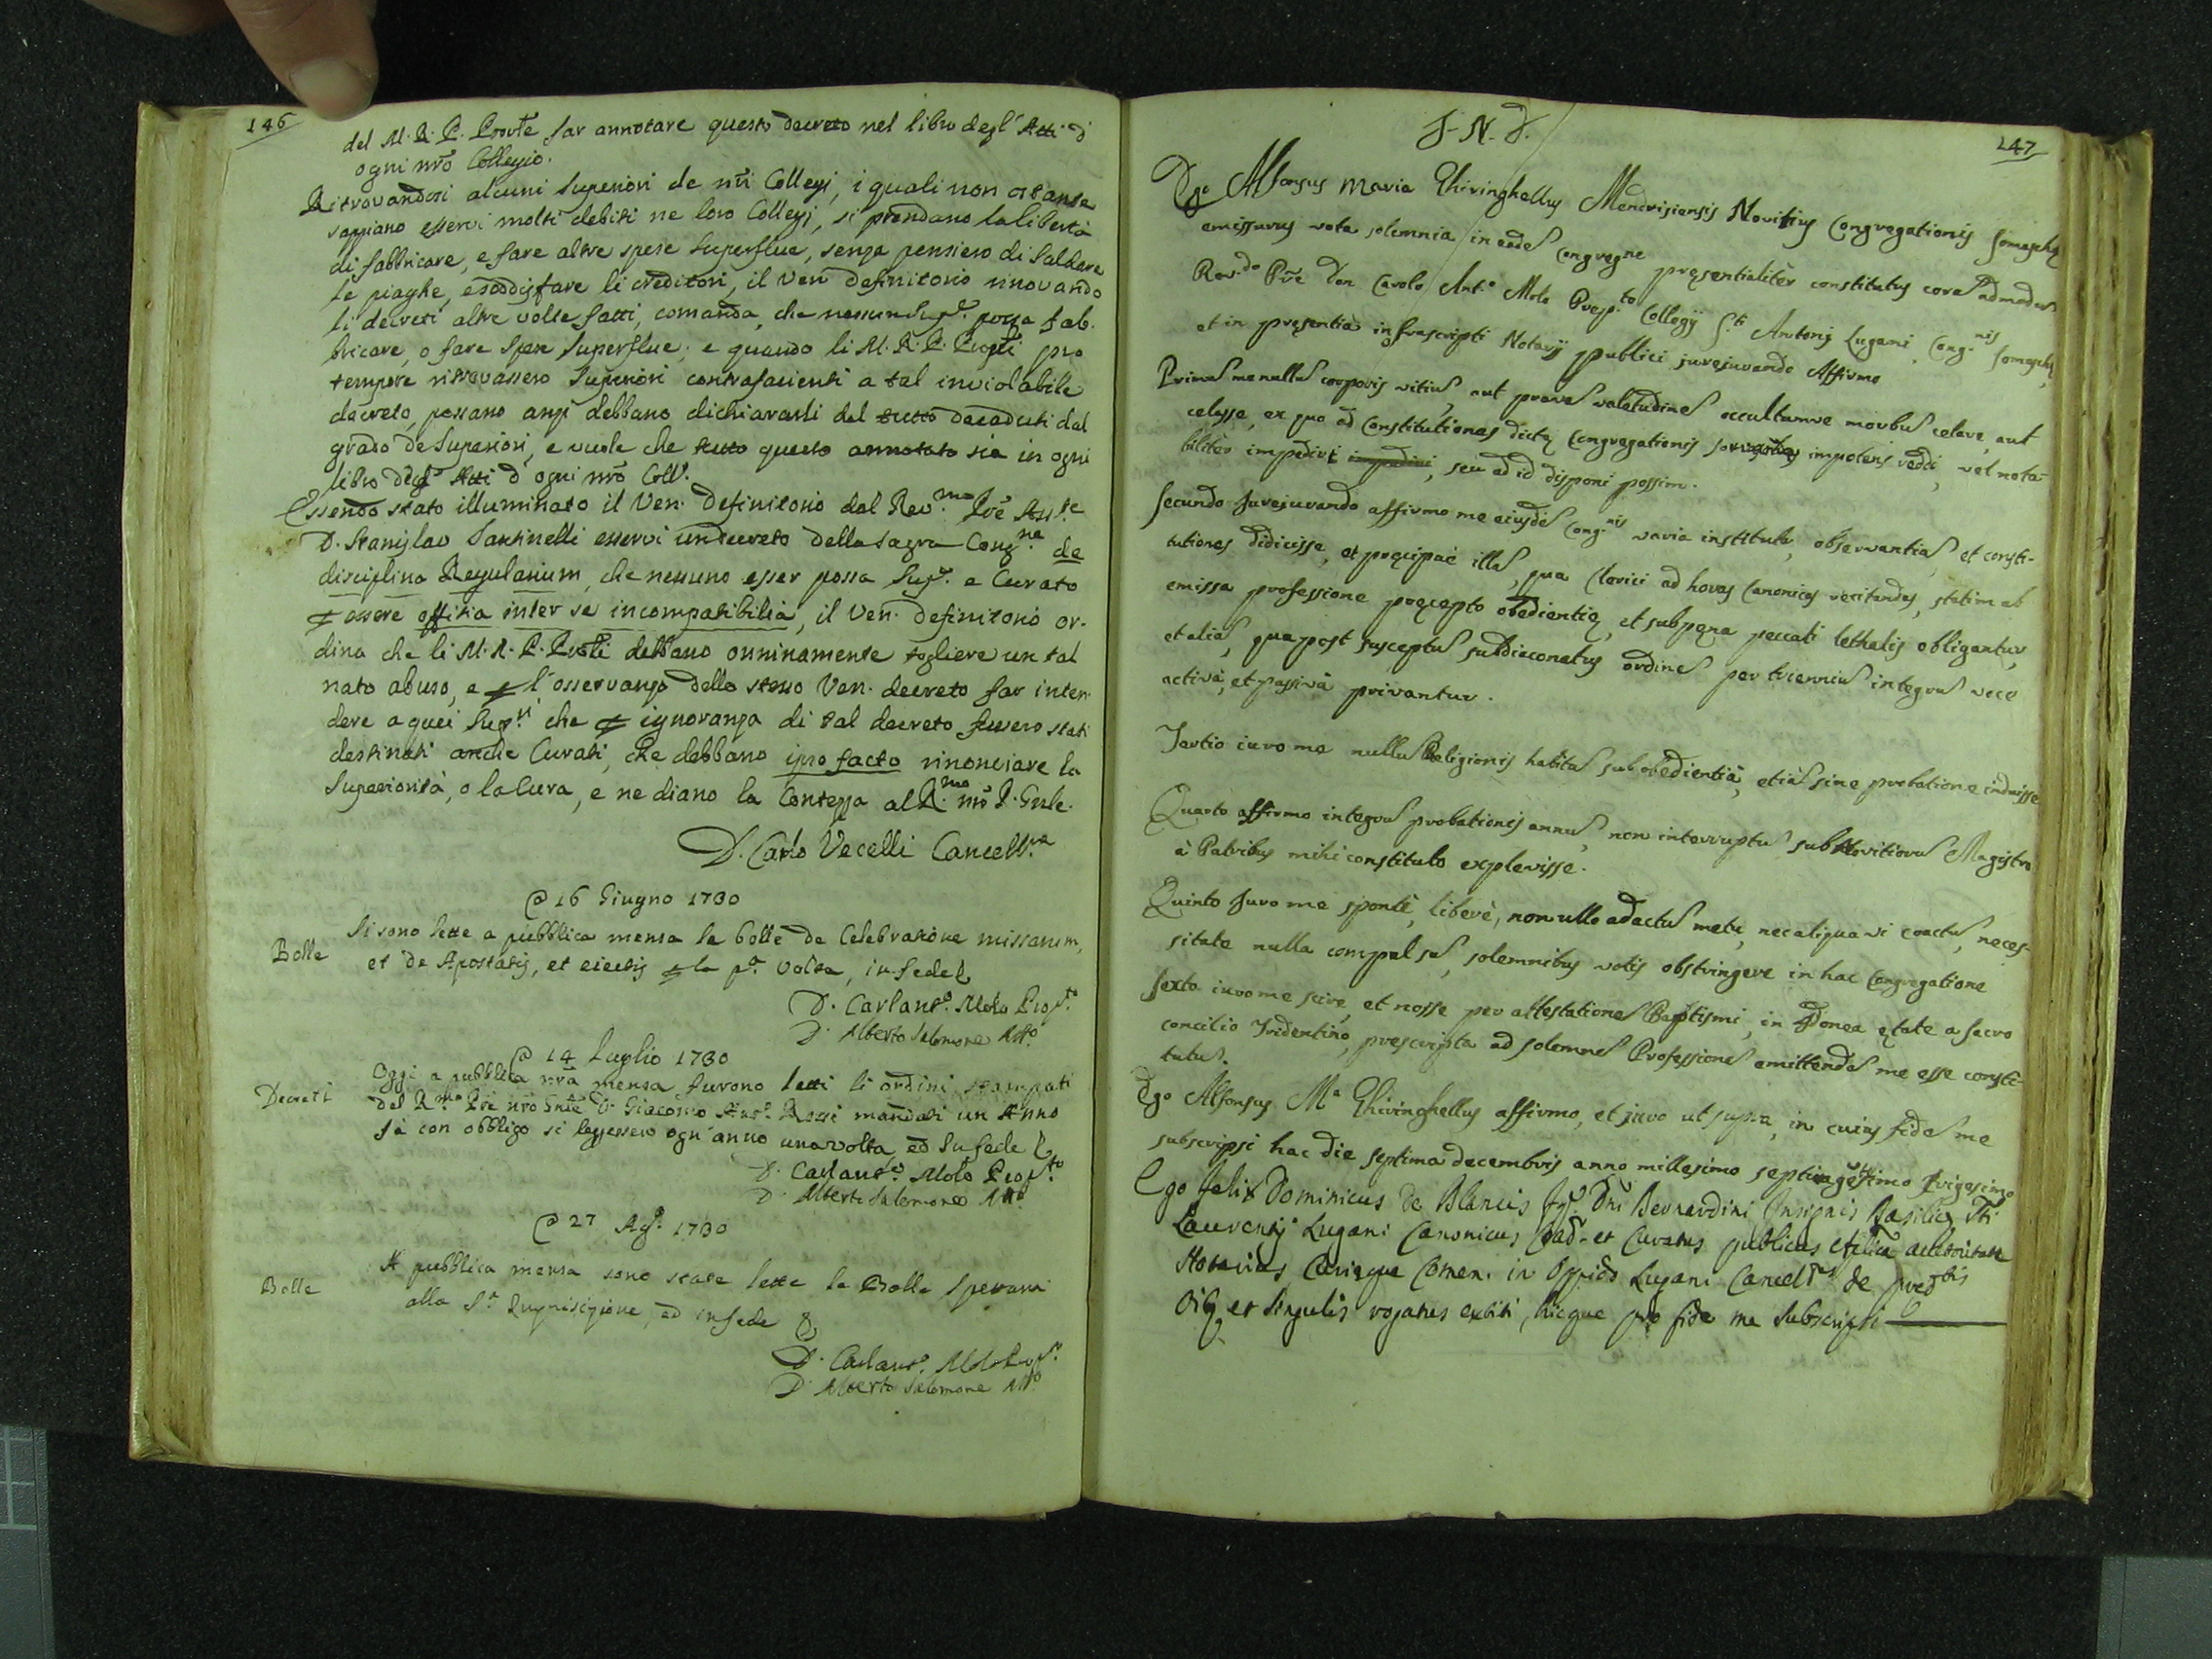 146
del M. R. P. Provle far annotare questo decreto nel libro degl' Atti d'
ogni nro Collegio.
Ritrovandosi alcuni Superiori de nri Collegj, i quali non ostante
sappiano esservi molti debiti ne loro Collegj, si prendano la libertà
di fabbricare, e fare altre spese superflue, senza pensiero di saldare
le piaghe, e sodisfare li creditori, il Ven. Definitorio rinovando
li decreti altre volte fatti, comanda, che nessun Supre. possa fab-
bricare, o fare spese superflue; e quando li M. R. P. Provli pro
tempore ritrovassero Superiori contrafacienti a tal inviolabile
decreto, possano anzi debbano dichiararli del tutto decaduti dal
grado de Superiori, e vuole che tutto questo annotato sia in ogni
libro degl' Atti d' ogni nro Coll.
Essendo stato illuminato il Ven. Definitorio dal Rev.mo Pre Ass.te
D. Stanislao Santinelli esservi un decreto della Sagra Cong.ne de
disciplina Regularium, che nessuno esser possa Supre. e Curato
p essere offitia inter se incompatibilia, il Ven. Definitorio or-
dina che li M. R. P. Provli debbano onninamente togliere un tal
nato abuso, e p l'osservanza dello stesso Ven. decreto far inten-
dere a quei Sup.ri che p ignoranza di tal decreto fussero stati
destinati anche Curati, che debbano ipso facto rinonciare la
Superiorità, o la Cura, e ne diano la Contezza al R.mo nro P. Gnle.
D. Carlo Vecelli Cancell.re
@ 16 Giugno 1730
Bolle Si sono lette a pubblica mensa le bolle de Celebratione missarum,
et de Apostatis, et eiectis p la p.a volta, in fede &
D. Carlant.o Molo Prop.to
D. Alberto Salomone Att.o
@ 14 Luglio 1730
Decreti Oggi a pubblica nra mensa furono letti li ordini stampati
del R.mo Pre nro Gnle D. Giacomo Ant.o Rossi mandati un Anno
fà con obbligo si leggessero ogn'anno una volta, ed In fede &
D. Carlant.o Molo Prop.to
D. Alberto Salomone Att.o
@ 27 Ag.o 1730
Bolle A pubblica mensa sono state lette le Bolle Spettanti
alla S.a Inquisizione, ed in fede &
D. Carlant.o Molo Prop.to
D. Alberto Salomone Att.o
147
I. N. D.
Ego Alfonsus Maria Ghiringhellus Mendrisiensis Novitius Congregationis Somaschę
emissurus vota solemnia in eadē Congregne pręsentialitèr constitutus corā admodū
Rev.do Pre Don Carolo Ant.o Molo Prep.to Collegij S.ti Antonij Lugani, Cong.nis Somaschę,
et in pręsentia infrascripti Notarij publici jurejurando Affirmo
Primū me nullū corporis vitiū, aut pravā valetudinē occultumve morbū celare, aut
celasse, ex quo ad Constitutiones dictę Congregationis servandas impotens reddi, vel nota-
bilitèr impediri, seu ad id disponi possim.
Secundo Jurejurando affirmo me eiusdē Cong.nis varia instituta, observantias, et consti-
tutiones didicisse, et pręcipuè illā, qua Clerici ad horas Canonicas recitandas, statim ab
emissa professione pręcepto obedientię, et sub pęna peccati lethalis obligantur,
et aliā, qua post susceptū subdiaconatus ordinē per trienniū integrū voce
activa, et passiva privantur.
Tertio iuro me nullū Religionis habitū sub obedientia, etiā sine probatione induisse
Quarto affirmo integrū probationis annū, non interruptū sub Novitiorū Magistro
à Patribus mihi constituto explevisse.
Quinto Juro me spontè, liberè, non ullo adactū metu, nec aliqua vi coactū, neces-
sitate nulla compulsū, solemnibus votis obstringere in hac Congregatione
Sexto iuro me scire, et nosse per attestationē Baptismi, in Idonea ętate a Sacro
concilio Tridentino, prescripta ad solemnē Professionē emittendā me esse consti-
tutū.
Ego Alfonsus M.a Ghiringhellus affirmo, et juro ut supra, in cuius fidē me
subscripsi hac die septima decembris anno millesimo septingētesimo trigesimo
Ego Felix Dominicus de Blancis fq. Dni Bernardini Insignis Basilicę Sti
Laurentij Lugani Canonicus Coad. et Curatus publicus Aplica auctoritate
Notarius Curięque Comen. in Oppido Lugani Cancell.us de pred.bis
Oibq et singulis rogatus extiti, hicque pro fide me subscripsi